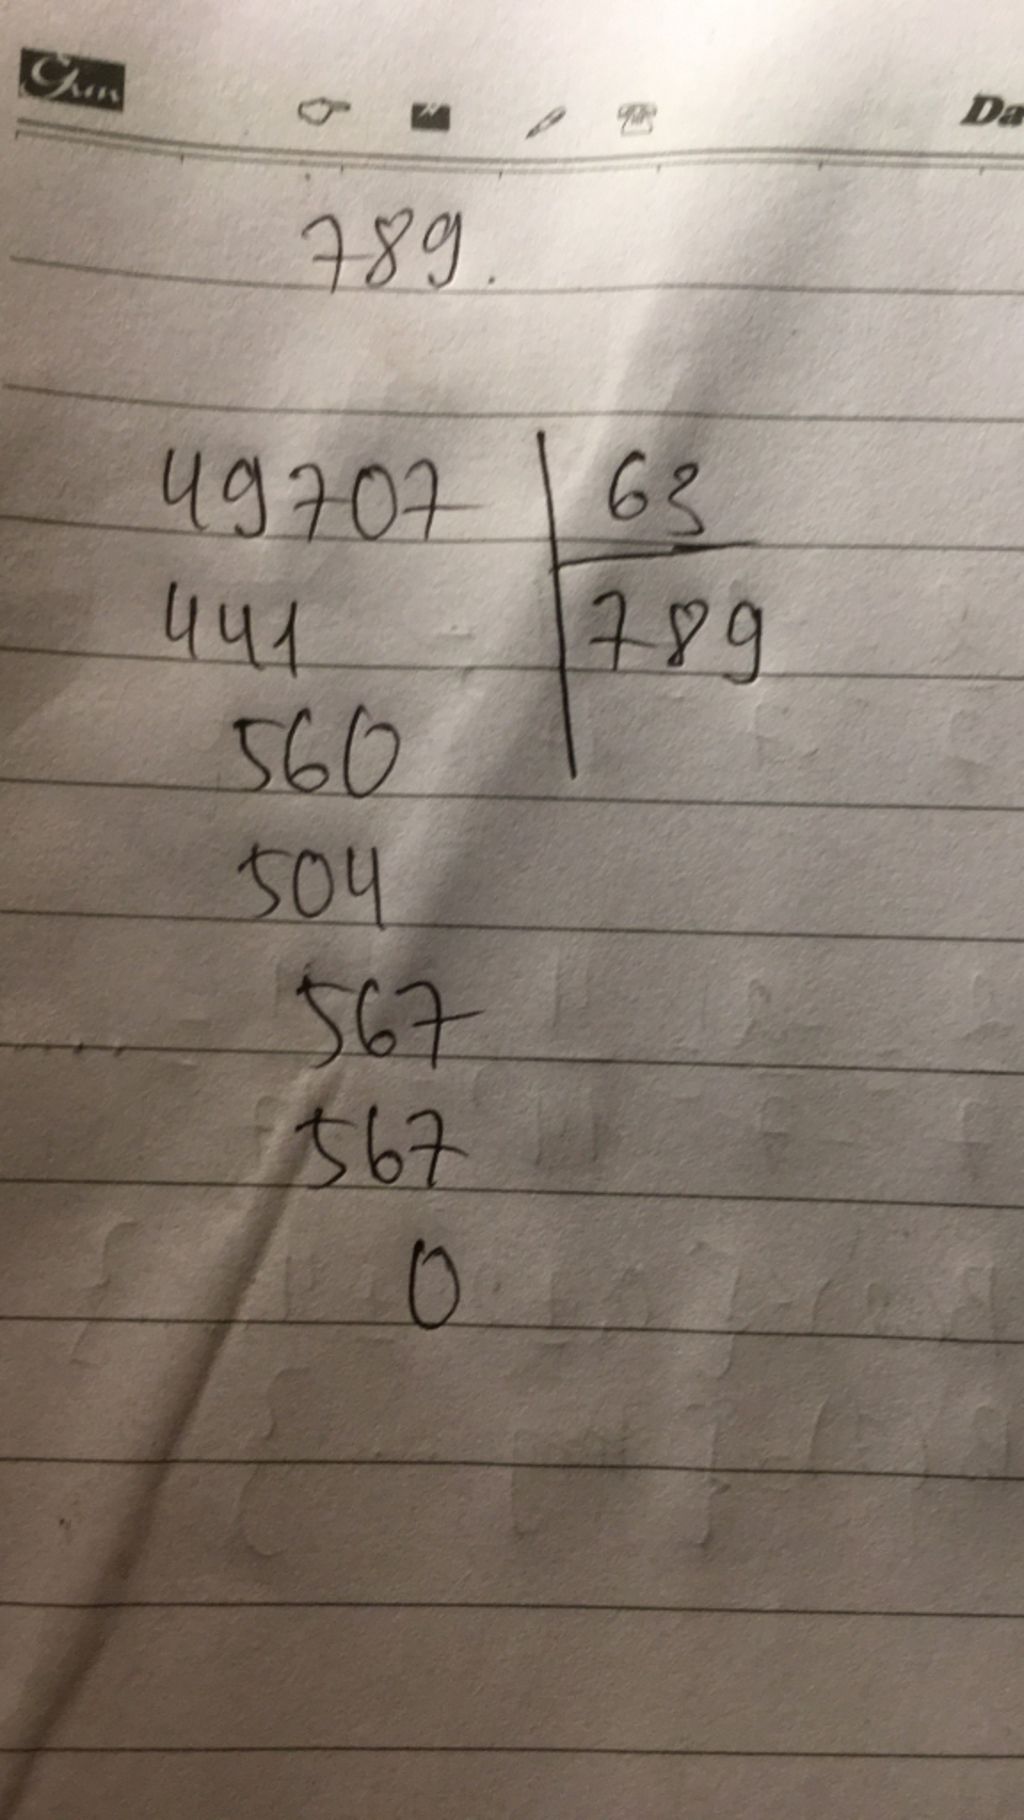 Da
789.
49707 63
441 789
560
504
567
567
0